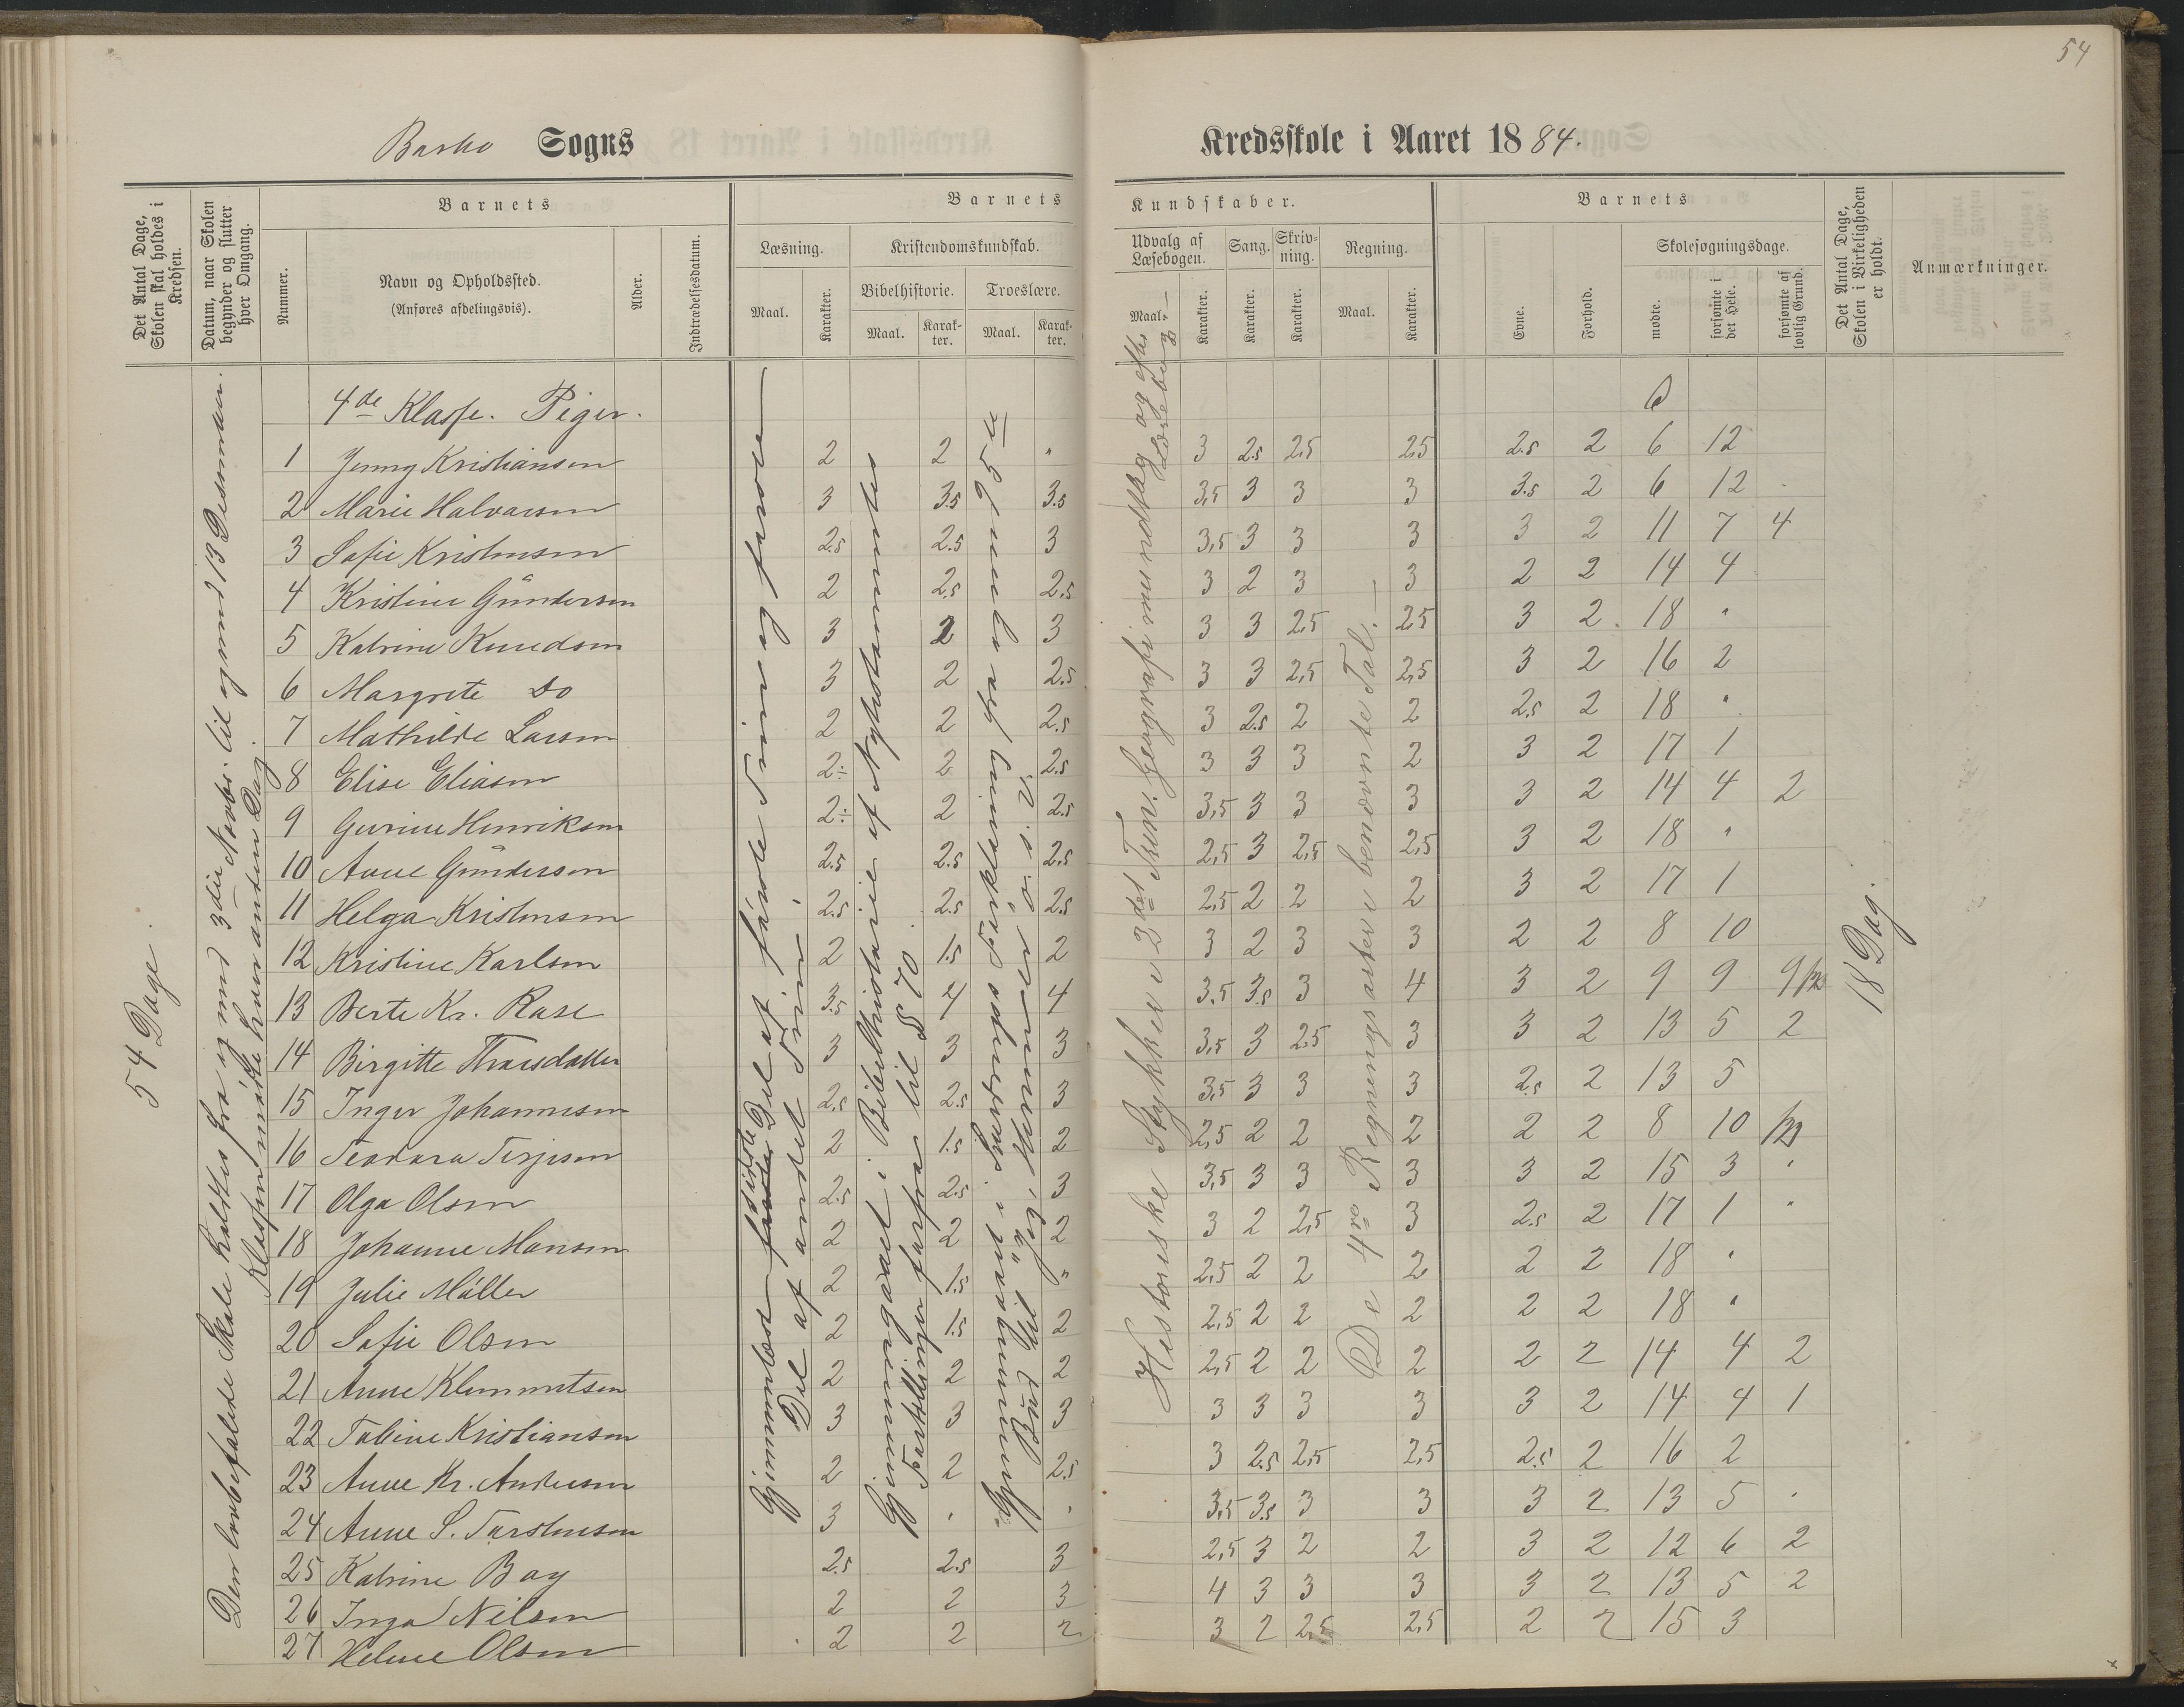 54
Barbo Sogns Kredsskole i Aaret 1884.
Det Antal Dage, Skolen skal holdes i Kredsen.
Datum, naar Skolen begynder og slutter hver Omgang.
Barnets
Nummer.
Navn og Opholdssted.
(Anføres afdelingsvis).
Alder.
Indtrædelsesdatum.
Barnets Kundskaber.
Læsning.
Maal.
Karakter.
Kristendomskundskab.
Bibelhistorie.
Maal.
Karakter.
Troeslære.
Maal.
Karakter.
Udvalg af Læsebogen.
Maal.
Karakter.
Sang.
Karakter.
Skrivning.
Karakter.
Regning.
Maal.
Karakter.
Barnets
Evne.
Forhold.
Skolesøgningsdage.
mødte.
forsømte i det Hele.
forsømte af lovlig Grund.
Det Antal Dage, Skolen i Virkeligheden er holdt.
Anmærkninger.
54 Dage.
Den lovbefalede Skole holdtes fra og med 3die Novbr. til og med 13 Desember.
Klassen mødte hver anden Dag.
4de Klasse. Piger.
1 Jenny Kristiansen 2 2 " 3 2.5 2,5 2,5 2.5 2 6 12
2 Marie Halvorsen 3 3.5 3.5 3,5 3 3 3 3.5 2 6 12
3 Sofie Kristensen 2.5 2.5 3 3,5 3 3 3 3 2 11 7 4
4 Kristine Gundersen 2 2.5 2.5 3 2 3 3 2 2 14 4
5 Katrine Knudsen 3 2 3 3 3 2,5 2,5 3 2 18 "
6 Margrete Do 3 2 2.5 3 3 2,5 2,5 3 2 16 2
7 Mathilde Larsen 2 2 2.5 3 2.5 2 2 2.5 2 18 "
8 Elise Eliasen 2÷ 2 2.5 3 3 3 2 3 2 17 1
9 Gurine Henriksen 2÷ 2 2.5 3,5 3 3 3 3 2 14 4 2
10 Anne Gundersen 2.5 2.5 2.5 2,5 3 2,5 2,5 3 2 18 "
11 Helga Kristensen 2.5 2.5 2.5 2,5 2 2 2 3 2 17 1
12 Kristine Karlsen 2 1.5 2 3 2 3 3 2 2 8 10
13 Berte Kr. Rase 3.5 4 4 3,5 3.5 3 4 3 2 9 9 9
14 Birgitte Thorsdatter 3 3 3 3,5 3 2,5 3 3 2 13 5 2
15 Inger Johannesen 2.5 2.5 3 3,5 3 3 3 2.5 2 13 5
16 Teodora Terjesen 2 1.5 2 2,5 2 2 2 2 2 8 10
17 Olga Olsen 2.5 2.5 3 3,5 3 3 3 3 2 15 3
18 Johanne Monsen 2 2 2 3 2 2,5 3 2.5 2 17 1 "
19 Julie Møller 2 1.5 " 2,5 2 2 2 2 2 18 "
20 Sofie Olsen 2 1.5 2 2,5 2 2 2 2 2 18 "
21 Anne Klemmetsen 2 2 2 2,5 2 2 2 2 2 14 4 2
22 Tobine Kristiansen 3 3 3 3 3 3 3 3 2 14 4 1
23 Anne Kr. Andersen 2 2 2.5 3 2.5 2,5 2,5 2.5 2 16 2
24 Anne S. Torstensen 3 3,5 3.5 3 3 3 2 13 5
25 Katrine Boy 2.5 2.5 3 2,5 3 2 2 3 2 12 6 2
26 Inga Nilsen 2 2 3 4 3 3 3 3 2 13 5 2
27 Helene Olsen 2 2 2 3 2 2,5 2,5 2 2 15 3
Gjennemlæst sidste Del af første Trin og første
Del af andet Trin.
Gjennemgaaet i Bibelhistorie af Nytestamentes
Fortællinger forfra til § 70.
Historiske Stykker i 2det Trin. Geografi mundtlig og efter Lærebog
De 4re Regningsarter i benævnte Tal.
18 Dag.